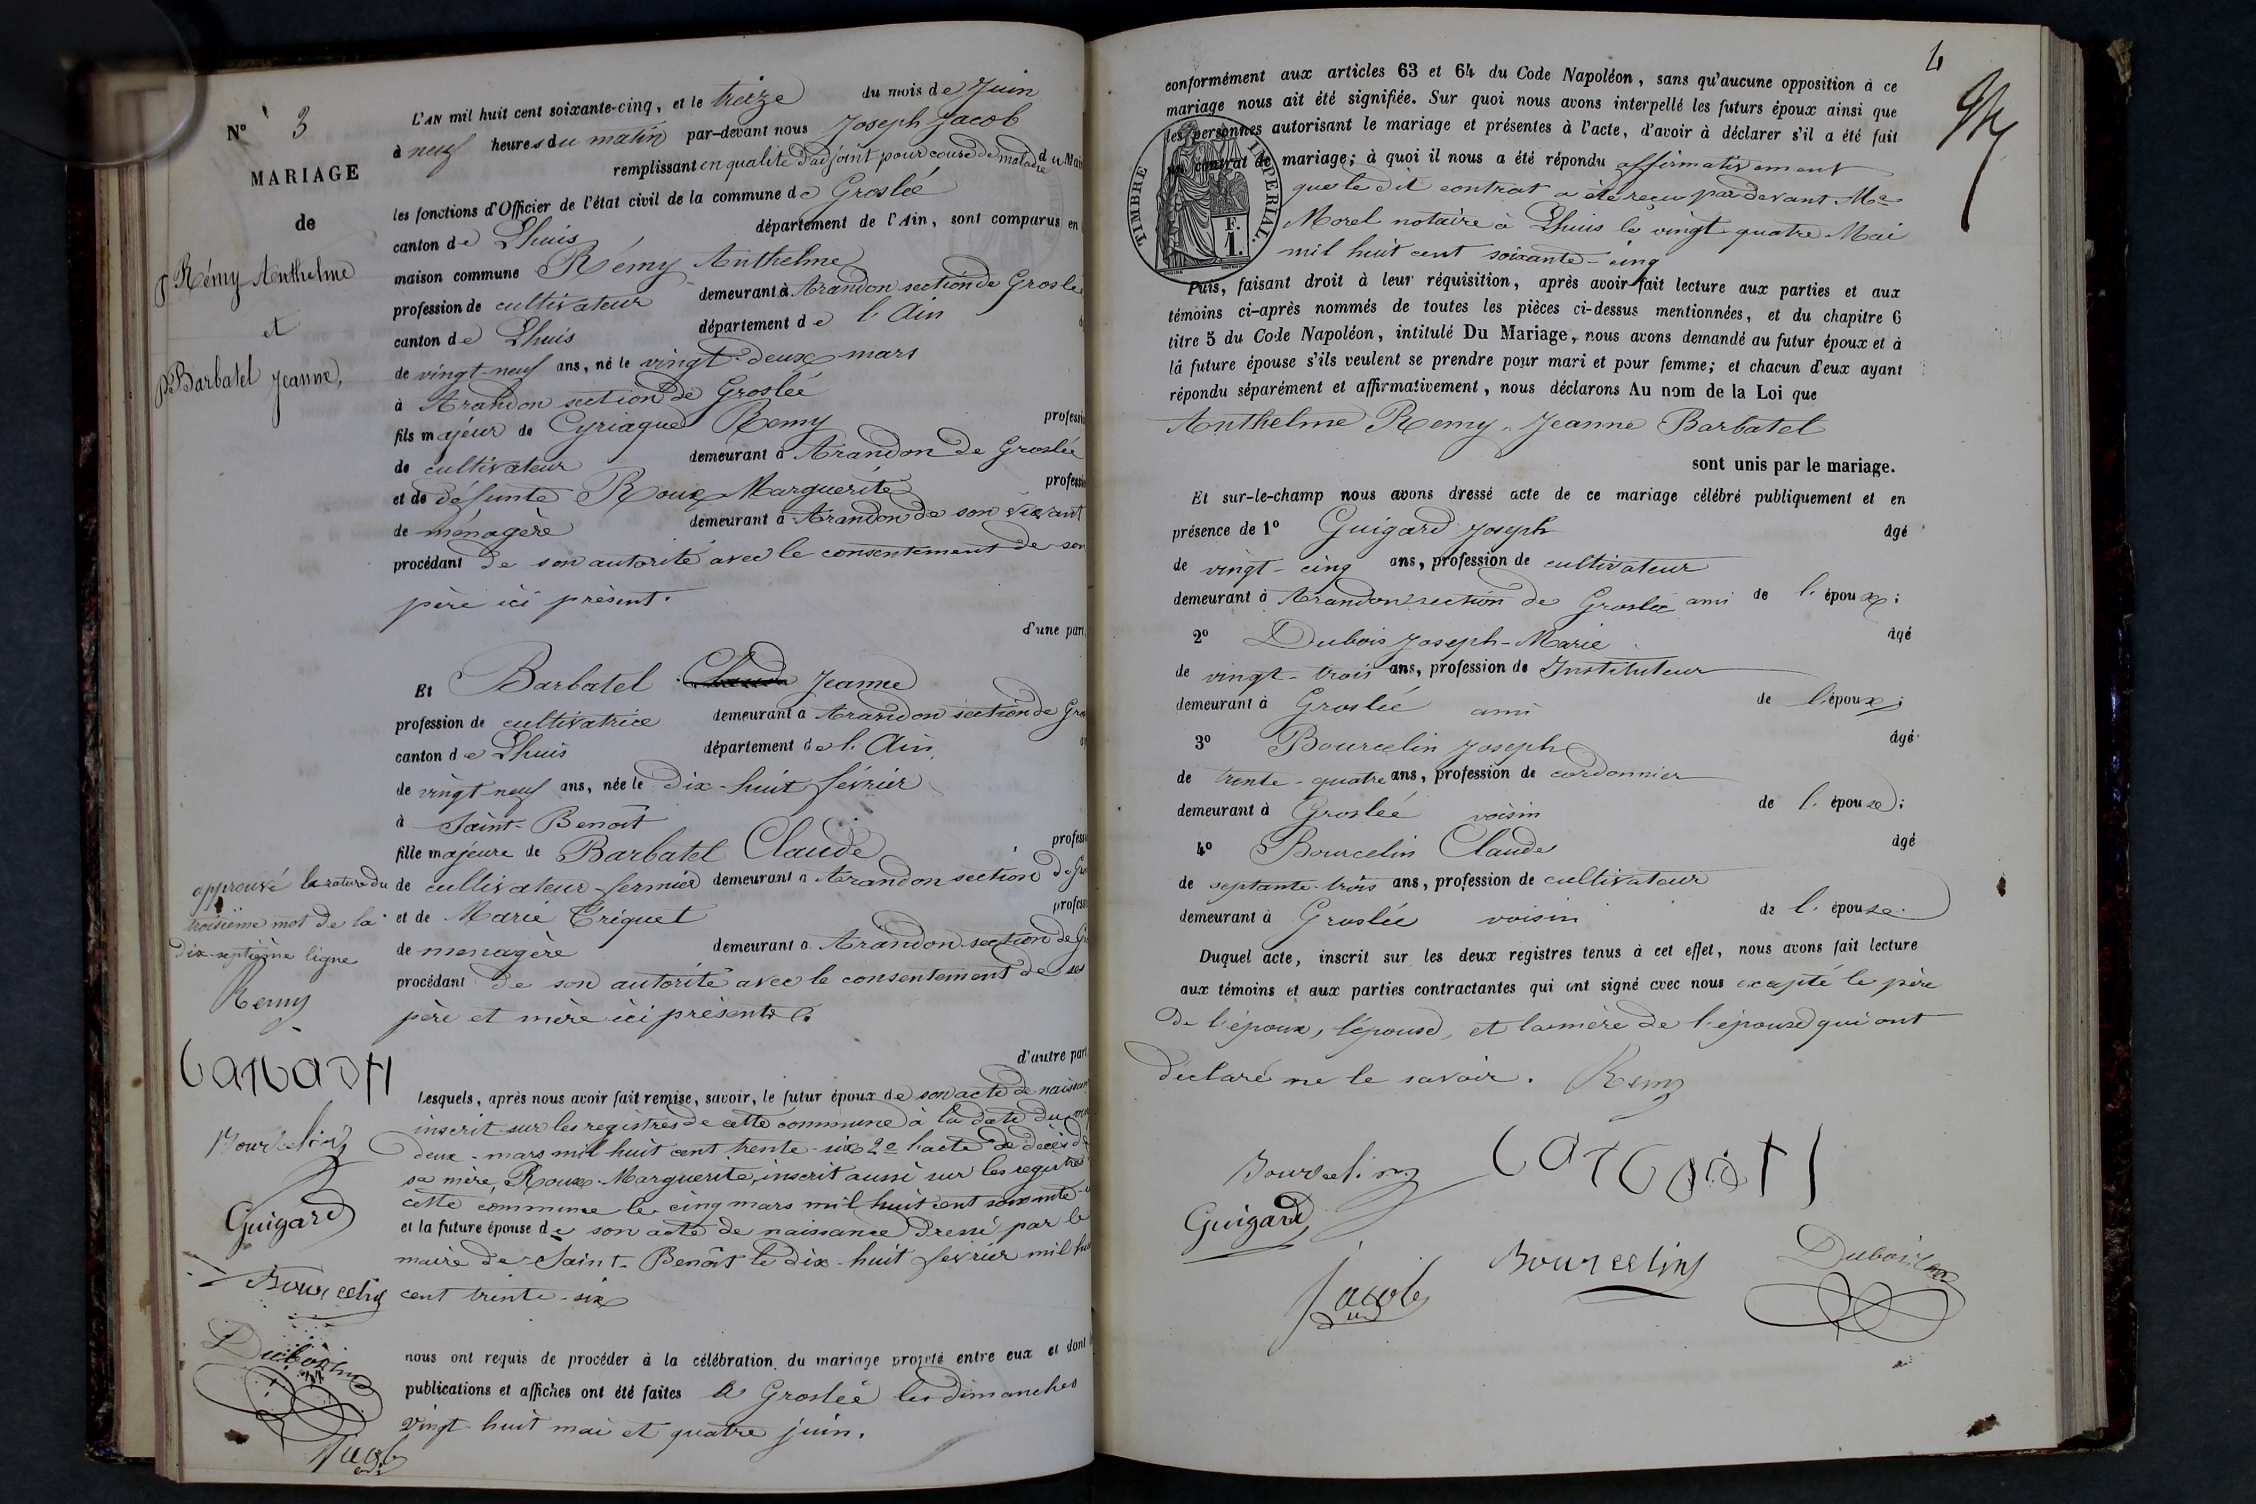 N° 3
MARIAGE
de
Rémy Anthelme
et
Barbatel Jeanne,
approuvé la rature du
troisième mot de la
dix-septième ligne
Remy
Bourcelin
Guigard
Bourcelin
Dubois jm
Jacob
L'AN mil huit cent soixante-cinq, et le treize du mois de Juin
à neuf heures du matin par-devant nous Joseph Jacob
remplissant en qualité d'adjoint pour cause de maladie du Mai
les fonctions d'Officier de l'état civil de la commune de Groslée
canton de Lhuis département de l'Ain, sont comparus en
maison commune Rémy Anthelme
profession de cultivateur demeurant à Arandon section de Groslée
canton de Lhuis département de l'Ain
de vingt-neuf ans, né le vingt-deux mars
à Arandon section de Groslée
fils majeur de Cyriaque Remy professi
de cultivateur demeurant à Arandon de Groslée
et de défunte Roux Marguerite professi
de ménagère demeurant à Arandon de son vivant
procédant de son autorité avec le consentement de son
père ici présent.
d'une part
Et Barbatel Claude Jeanne
profession de cultivatrice demeurant à Arandon section de Gro
canton de Lhuis département de l'Ain
de vingt-neuf ans, née le dix-huit février
à Saint-Benoît
fille majeure de Barbatel Claude profess
de cultivateur fermier demeurant à Arandon section de Gro
et de Marie Triquet profess
de menagère demeurant à Arandon section de Gr
procédant de son autorité avec le consentement de ses
père et mère ici présents.
d'autre part
Lesquels, après nous avoir fait remise, savoir, le futur époux de son acte de naissan
inscrit sur les registres de cette commune à la date du
deux-mars mil huit cent trente-six 2e l'acte de décès de
sa mère, Roux Marguerite, inscrit aussi sur les registres
cette commune le cinq mars mil huit cent soixante
et la future épouse de son acte de naissance dressé par le
maire de Saint-Benoît le dix-huit février mil hui
cent trente-six
nous ont requis de procéder à la célébration du mariage projeté entre eux et dont
publications et affiches ont été faites à Groslée les dimanches
vingt-huit mai et quatre juin.
4
conformément aux articles 63 et 64 du Code Napoléon, sans qu'aucune opposition à ce
mariage nous ait été signifiée. Sur quoi nous avons interpellé les futurs époux ainsi que
les personnes autorisant le mariage et présentes à l'acte, d'avoir à déclarer s'il a été fait
un contrat de mariage; à quoi il nous a été répondu affirmativement
que le dit contrat a été reçu par devant Me
Morel notaire à Lhuis le vingt quatre Mai
mil huit cent soixante-cinq
TIMBRE IMPÉRIAL.
F.
1.
Puis, faisant droit à leur réquisition, après avoir fait lecture aux parties et aux
témoins ci-après nommés de toutes les pièces ci-dessus mentionnées, et du chapitre 6
titre 5 du Code Napoléon, intitulé Du Mariage, nous avons demandé au futur époux et à
la future épouse s'ils veulent se prendre pour mari et pour femme; et chacun d'eux ayant
répondu séparément et affirmativement, nous déclarons Au nom de la Loi que
Anthelme Remy, Jeanne Barbatel
sont unis par le mariage.
Et sur-le-champ nous avons dressé acte de ce mariage célébré publiquement et en
présence de 1° Guigard Joseph âgé
de vingt-cinq ans, profession de cultivateur
demeurant à Arandon section de Groslée ami de l'époux;
2° Dubois Joseph-Marie âgé
de vingt-trois ans, profession de Instituteur
demeurant à Groslée ami de l'époux;
3° Bourcelin Joseph âgé
de trente-quatre ans, profession de cordonnier
demeurant à Groslée voisin de l'épouse;
4° Bourcelin Claude âgé
de septante-trois ans, profession de cultivateur
demeurant à Groslée voisin de l'épouse.
Duquel acte, inscrit sur les deux registres tenus à cet effet, nous avons fait lecture
aux témoins et aux parties contractantes qui ont signé avec nous excepté le père
de l'époux, l'épouse, et la mère de l'épouse qui ont
déclaré ne le savoir. Remy
Bourcelin
Guigard
Jacob
Bourcelin
Dubois jm